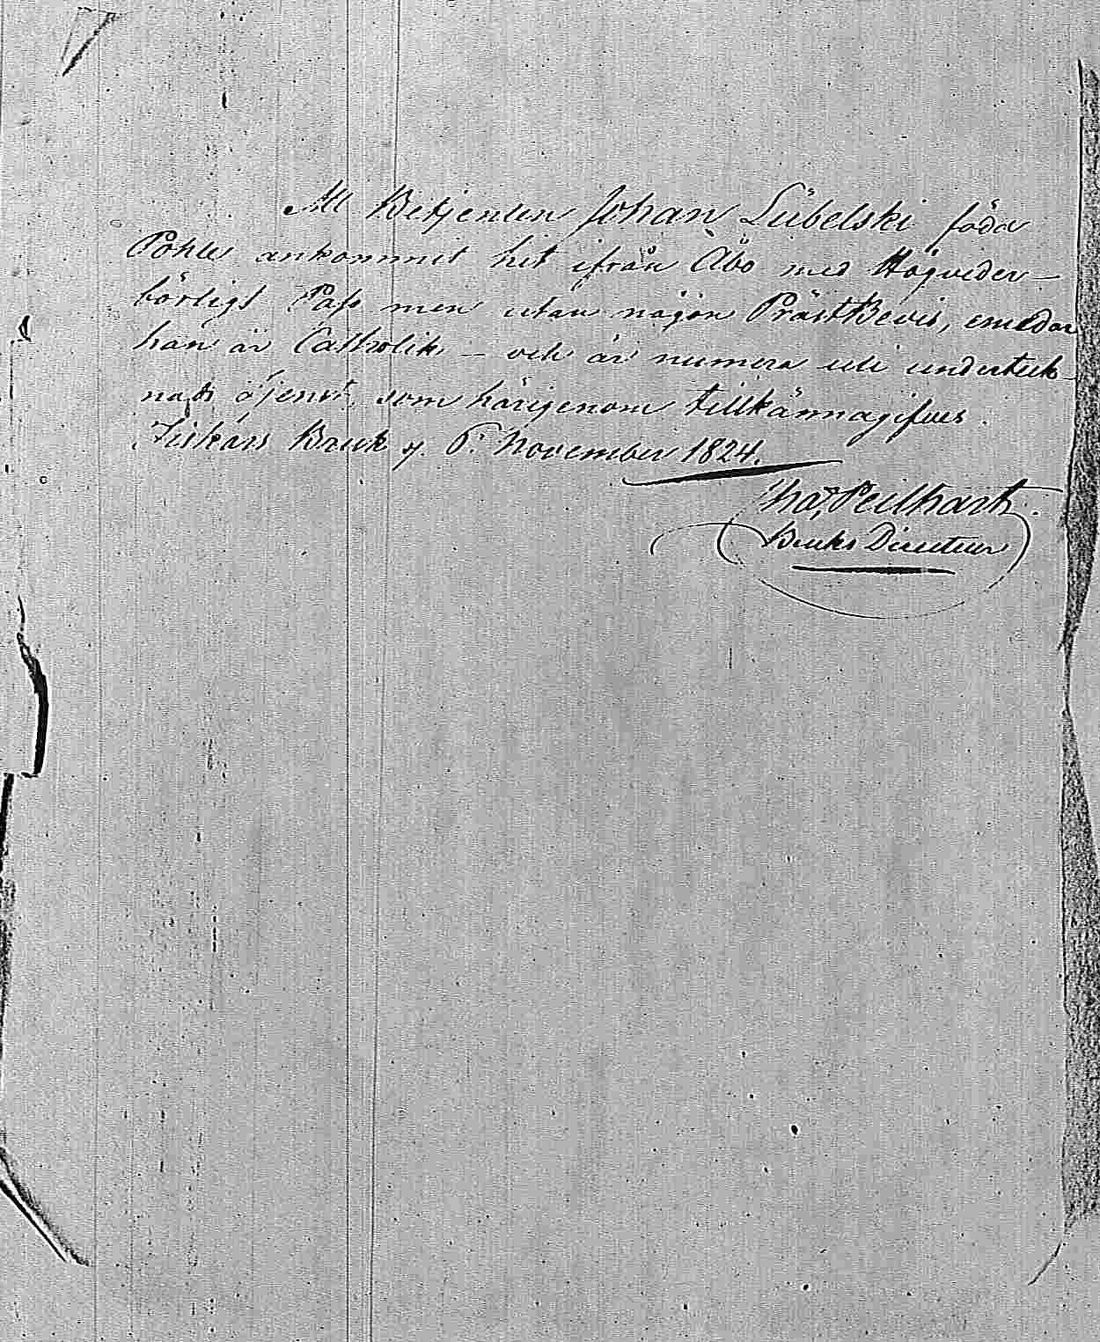 Att Betjenten Johan Lübelski föda
Pohle ankommit hit ifrån Åbo med Högveder-
börligt Pass men utan någon PrästBevis, emedan
han är Catholik, – och är numera uti underteck-
nads tjenst, som härigenom tillkännagifves.
Fiskars Bruk d. 6. November 1824.
Bruks Directeur